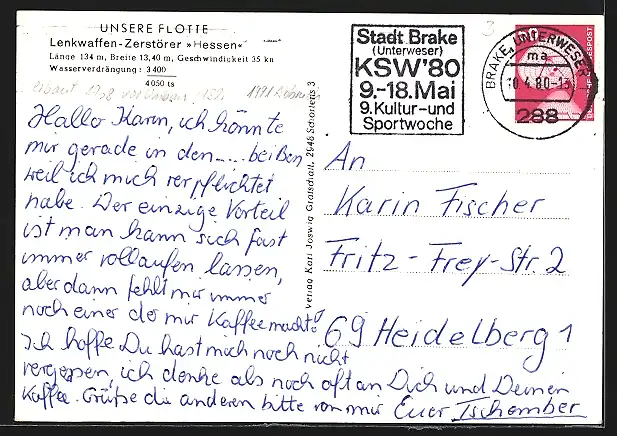 UNSERE FLOTTE
Lenkwaffen-Zerstörer »Hessen«
Länge 134 m, Breite 13,40 m, Geschwindigkeit 35 kn
Wasserverdrängung: 3400
4050 ts
Stadt Brake
(Unterweser)
KSW'80
9.-18. Mai
9. Kultur- und
Sportwoche
BRAKE, UNTERWESER
ma
10.4.80-15
288
BUNDESPOST
3
Hallo Karin, ich könnte
mir gerade in den ..... beißen
weil ich mich verpflichtet
habe. Der einzige Vorteil
ist man kann sich fast
immer vollaufen lassen,
aber dann fehlt mir immer
noch einer der mir Kaffee macht.
Ich hoffe Du hast mich noch nicht
vergessen, ich denke als noch oft an Dich und Deinen
Kaffee. Grüße die anderen bitte von mir Euer Tschember
Verlag Karl Joswig Gratschatt, 2948 Schortens 3
An
Karin Fischer
Fritz-Frey-Str. 2
69 Heidelberg 1